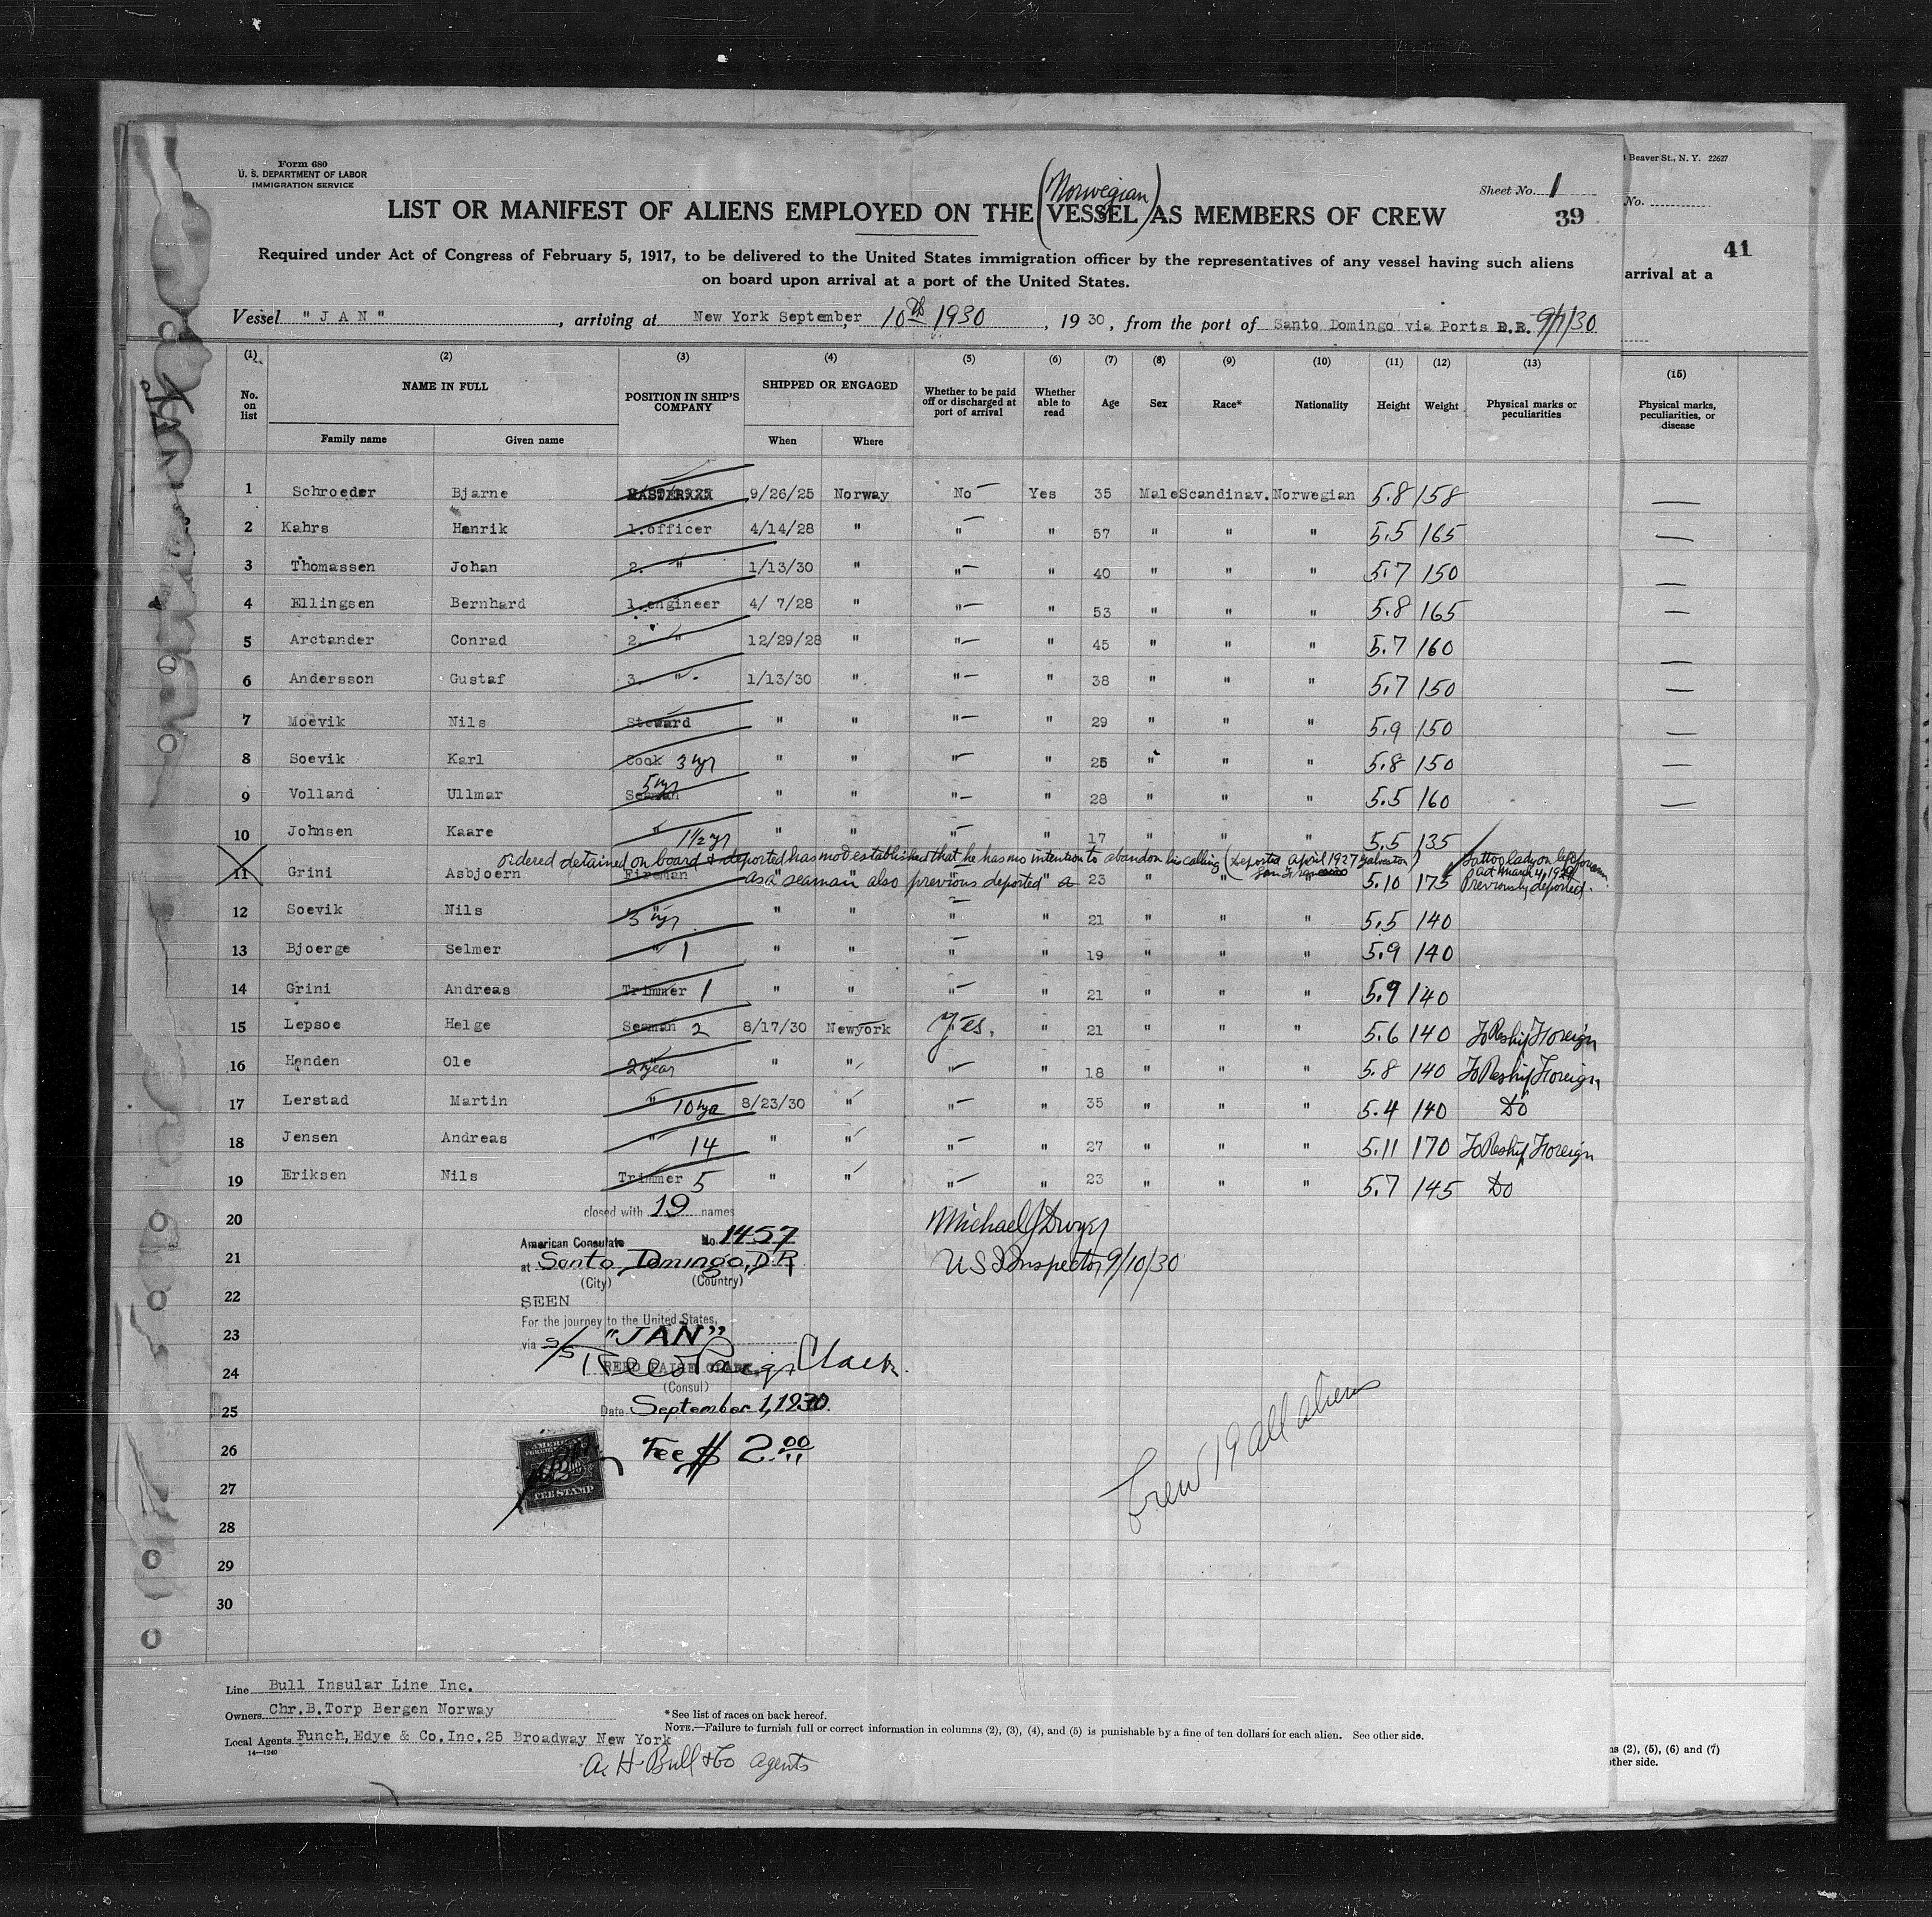 Form 680
U. S. DEPARTMENT OF LABOR
IMMIGRATION SERVICE
Beaver St., N. Y. 22627
Sheet No. 1
No.
(Norwegian)
LIST OR MANIFEST OF ALIENS EMPLOYED ON THE VESSEL AS MEMBERS OF CREW
39
41
Required under Act of Congress of February 5, 1917, to be delivered to the United States immigration officer by the representatives of any vessel having such aliens
on board upon arrival at a port of the United States.
arrival at a
Vessel "JAN", arriving at New York September 10th 1930, 1930, from the port of Santo Domingo via Ports D.R. 9/1/30
(1) (2) (3) (4) (5) (6) (7) (8) (9) (10) (11) (12) (13) (15)
No. on list NAME IN FULL Family name Given name POSITION IN SHIP'S COMPANY SHIPPED OR ENGAGED When Where Whether to be paid off or discharged at port of arrival Whether able to read Age Sex Race* Nationality Height Weight Physical marks or peculiarities Physical marks, peculiarities, or disease
1 Schroeder Bjarne MASTER 9/26/25 Norway No — Yes 35 Male Scandinav. Norwegian 5.8 158 —
2 Kahrs Henrik 1.officer 4/14/28 " " — " 57 " " " 5.5 165 —
3 Thomassen Johan 2. " 1/13/30 " " — " 40 " " " 5.7 150 —
4 Ellingsen Bernhard 1.engineer 4/ 7/28 " " — " 53 " " " 5.8 165 —
5 Arctander Conrad 2. " 12/29/28 " " — " 45 " " " 5.7 160 —
6 Andersson Gustaf 3. " 1/13/30 " " — " 38 " " " 5.7 150 —
7 Moevik Nils Steward " " " — " 29 " " " 5.9 150 —
8 Soevik Karl Cook 3 yr " " " — " 25 " " " 5.8 150 —
9 Volland Ullmar Seaman 5 yr " " " — " 28 " " " 5.5 160 —
10 Johnsen Kaare " 1½ yr " " " — " 17 " " " 5.5 135
ordered detained on board & deported has not established that he has no intention to abandon his calling (deported April 1927 Galveston)
11 Grini Asbjoern Fireman " " " — " 23 " " " 5.10 175 Tattoo lady on left forearm. Act March 4, 1929 Previously deported.
as a seaman also previous deported San Francisco
12 Soevik Nils " 3 yr " " " — " 21 " " " 5.5 140
13 Bjoerge Selmer " 1 " " " — " 19 " " " 5.9 140
14 Grini Andreas Trimmer 1 " " " — " 21 " " " 5.9 140
15 Lepsoe Helge Seaman 2 8/17/30 Newyork Yes. " 21 " " " 5.6 140 To Reship Foreign
16 Handen Ole " 2 year " " " — " 18 " " " 5.8 140 To Reship Foreign
17 Lerstad Martin " 10 yrs 8/23/30 " " — " 35 " " " 5.4 140 Do
18 Jensen Andreas " 14 " " " — " 27 " " " 5.11 170 To Reship Foreign
19 Eriksen Nils Trimmer 5 " " " — " 23 " " " 5.7 145 Do
closed with 19 names
20
Michael J Dwyer
American Consulate No. 1457
21
at Santo Domingo, D.R.
U S I Inspector 9/10/30
(City) (Country)
22
SEEN
For the journey to the United States,
23
via S/S "JAN"
24
REED PAIGE CLARK
Reed Paige Clark.
(Consul)
25
Date September 1, 1930.
26
Fee $ 2.00
AMERICAN
FEE STAMP
27
Crew 19 all aliens
28
29
30
Line Bull Insular Line Inc.
Owners Chr.B.Torp Bergen Norway
Local Agents Funch,Edye & Co.Inc.25 Broadway New York
14—1240
A. H. Bull & Co agents
* See list of races on back hereof.
NOTE.—Failure to furnish full or correct information in columns (2), (3), (4), and (5) is punishable by a fine of ten dollars for each alien. See other side.
ns (2), (5), (6) and (7)
other side.